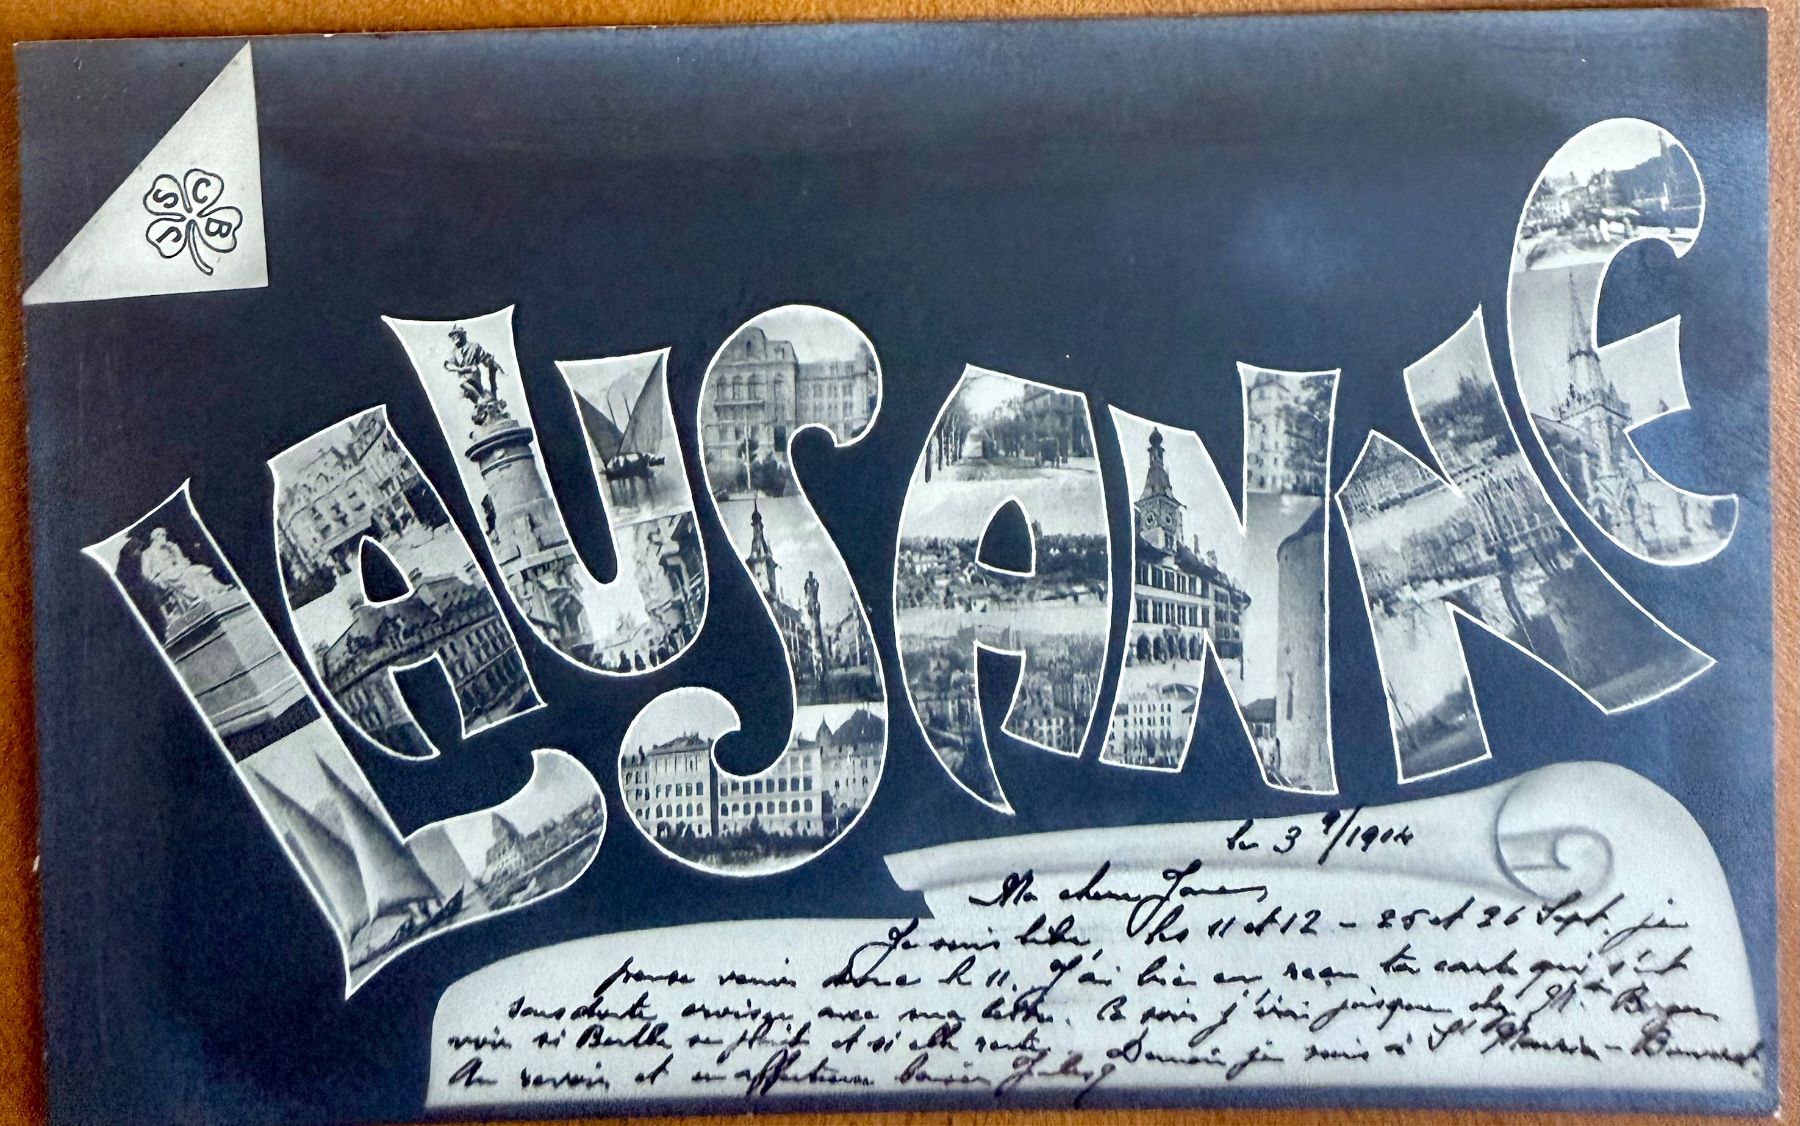 S C B J
LAUSANNE
le 3 9/1904
Ma chère Jane
Je suis libre, les 11 et 12 - 25 et 26 Sept. je
pense venir donc le 11. J'ai bien reçu ta carte qui s'est
sans doute croisée avec ma lettre. Ce soir j'irai jusque chez
voir si Berthe se plait et si elle reste. Demain je suis à St Maurice -
Au revoir et affectueux baisers Jules